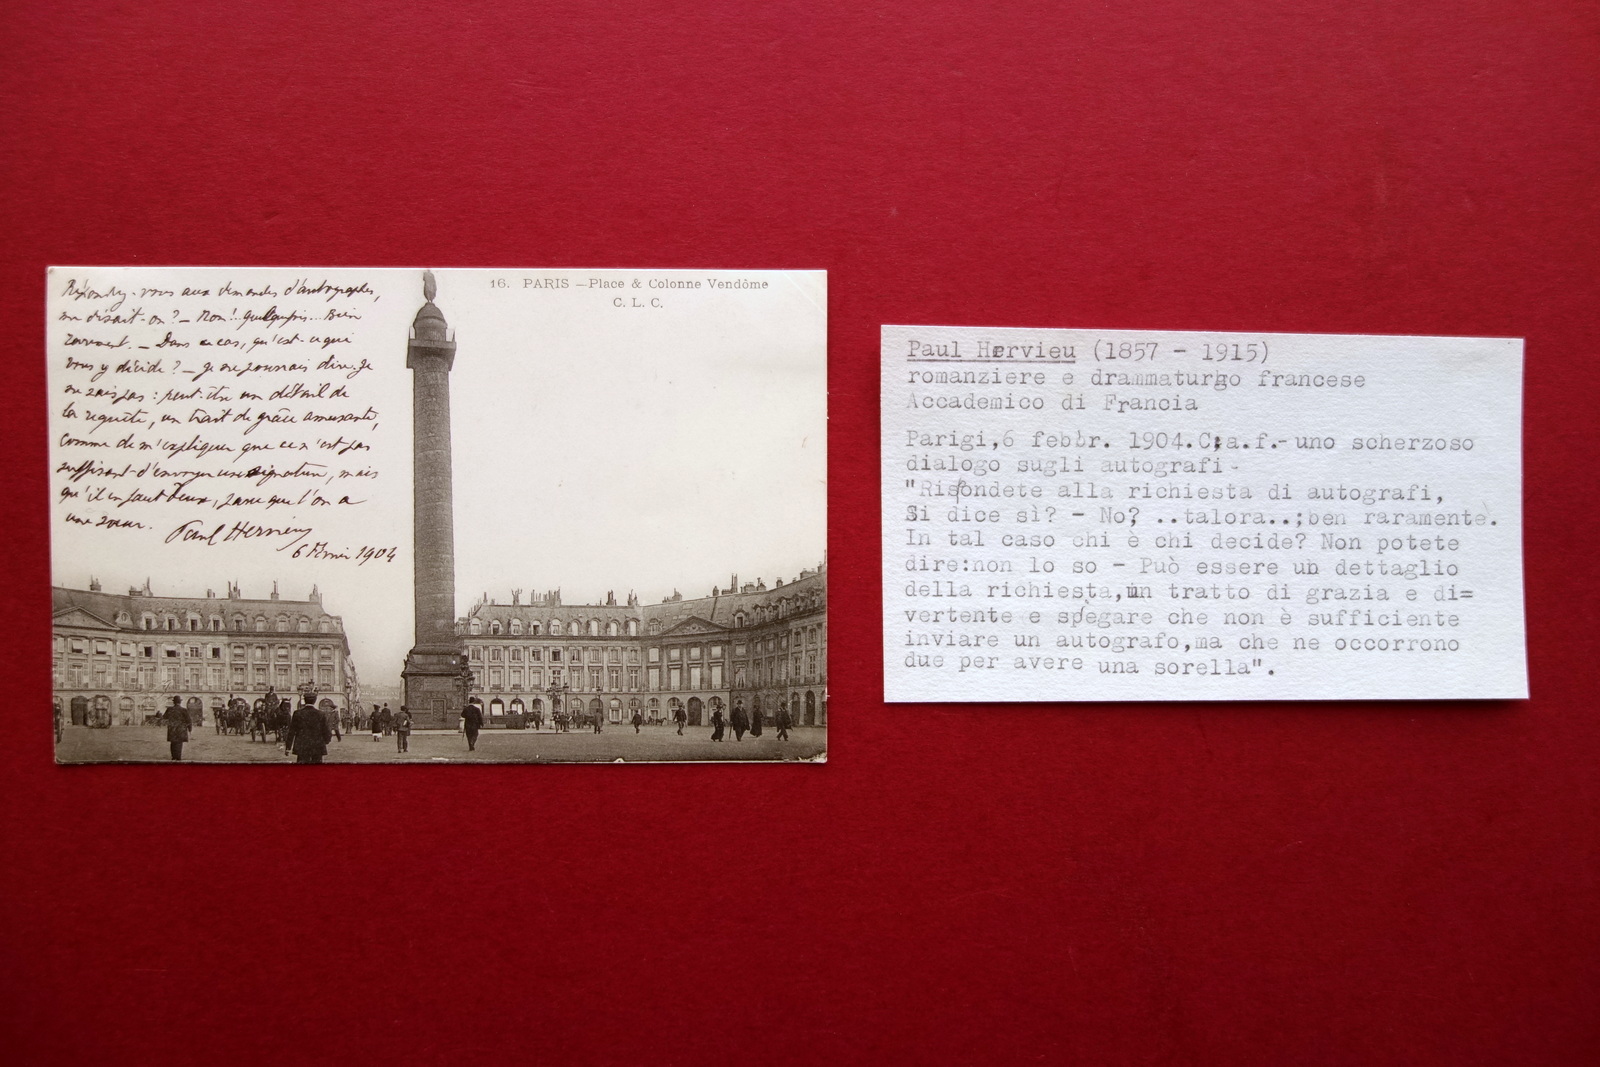 Répondez-vous aux demandes d'autographes,
me disait-on? – Non!.. quelquefois... Bien
rarement. – Dans ce cas, qu'est-ce qui
vous y décide? – Je ne pourrais dire. Je
ne sais pas : peut-être un détail de
la requête, un trait de grâce amusante,
comme de m'expliquer que ce n'est pas
suffisant d'envoyer une signature, mais
qu'il en faut deux, parce que l'on a
une sœur.
Paul Hervieu
6 février 1904
16. PARIS – Place & Colonne Vendôme
C. L. C.
Paul Hervieu (1857 - 1915)
romanziere e drammaturgo francese
Accademico di Francia
Parigi,6 febbr. 1904.C.a.f.- uno scherzoso
dialogo sugli autografi-
"Rispondete alla richiesta di autografi,
Si dice sì? - No? ..talora..;ben raramente.
In tal caso chi è chi decide? Non potete
dire:non lo so - Può essere un dettaglio
della richiesta,un tratto di grazia e di=
vertente e spiegare che non è sufficiente
inviare un autografo,ma che ne occorrono
due per avere una sorella".